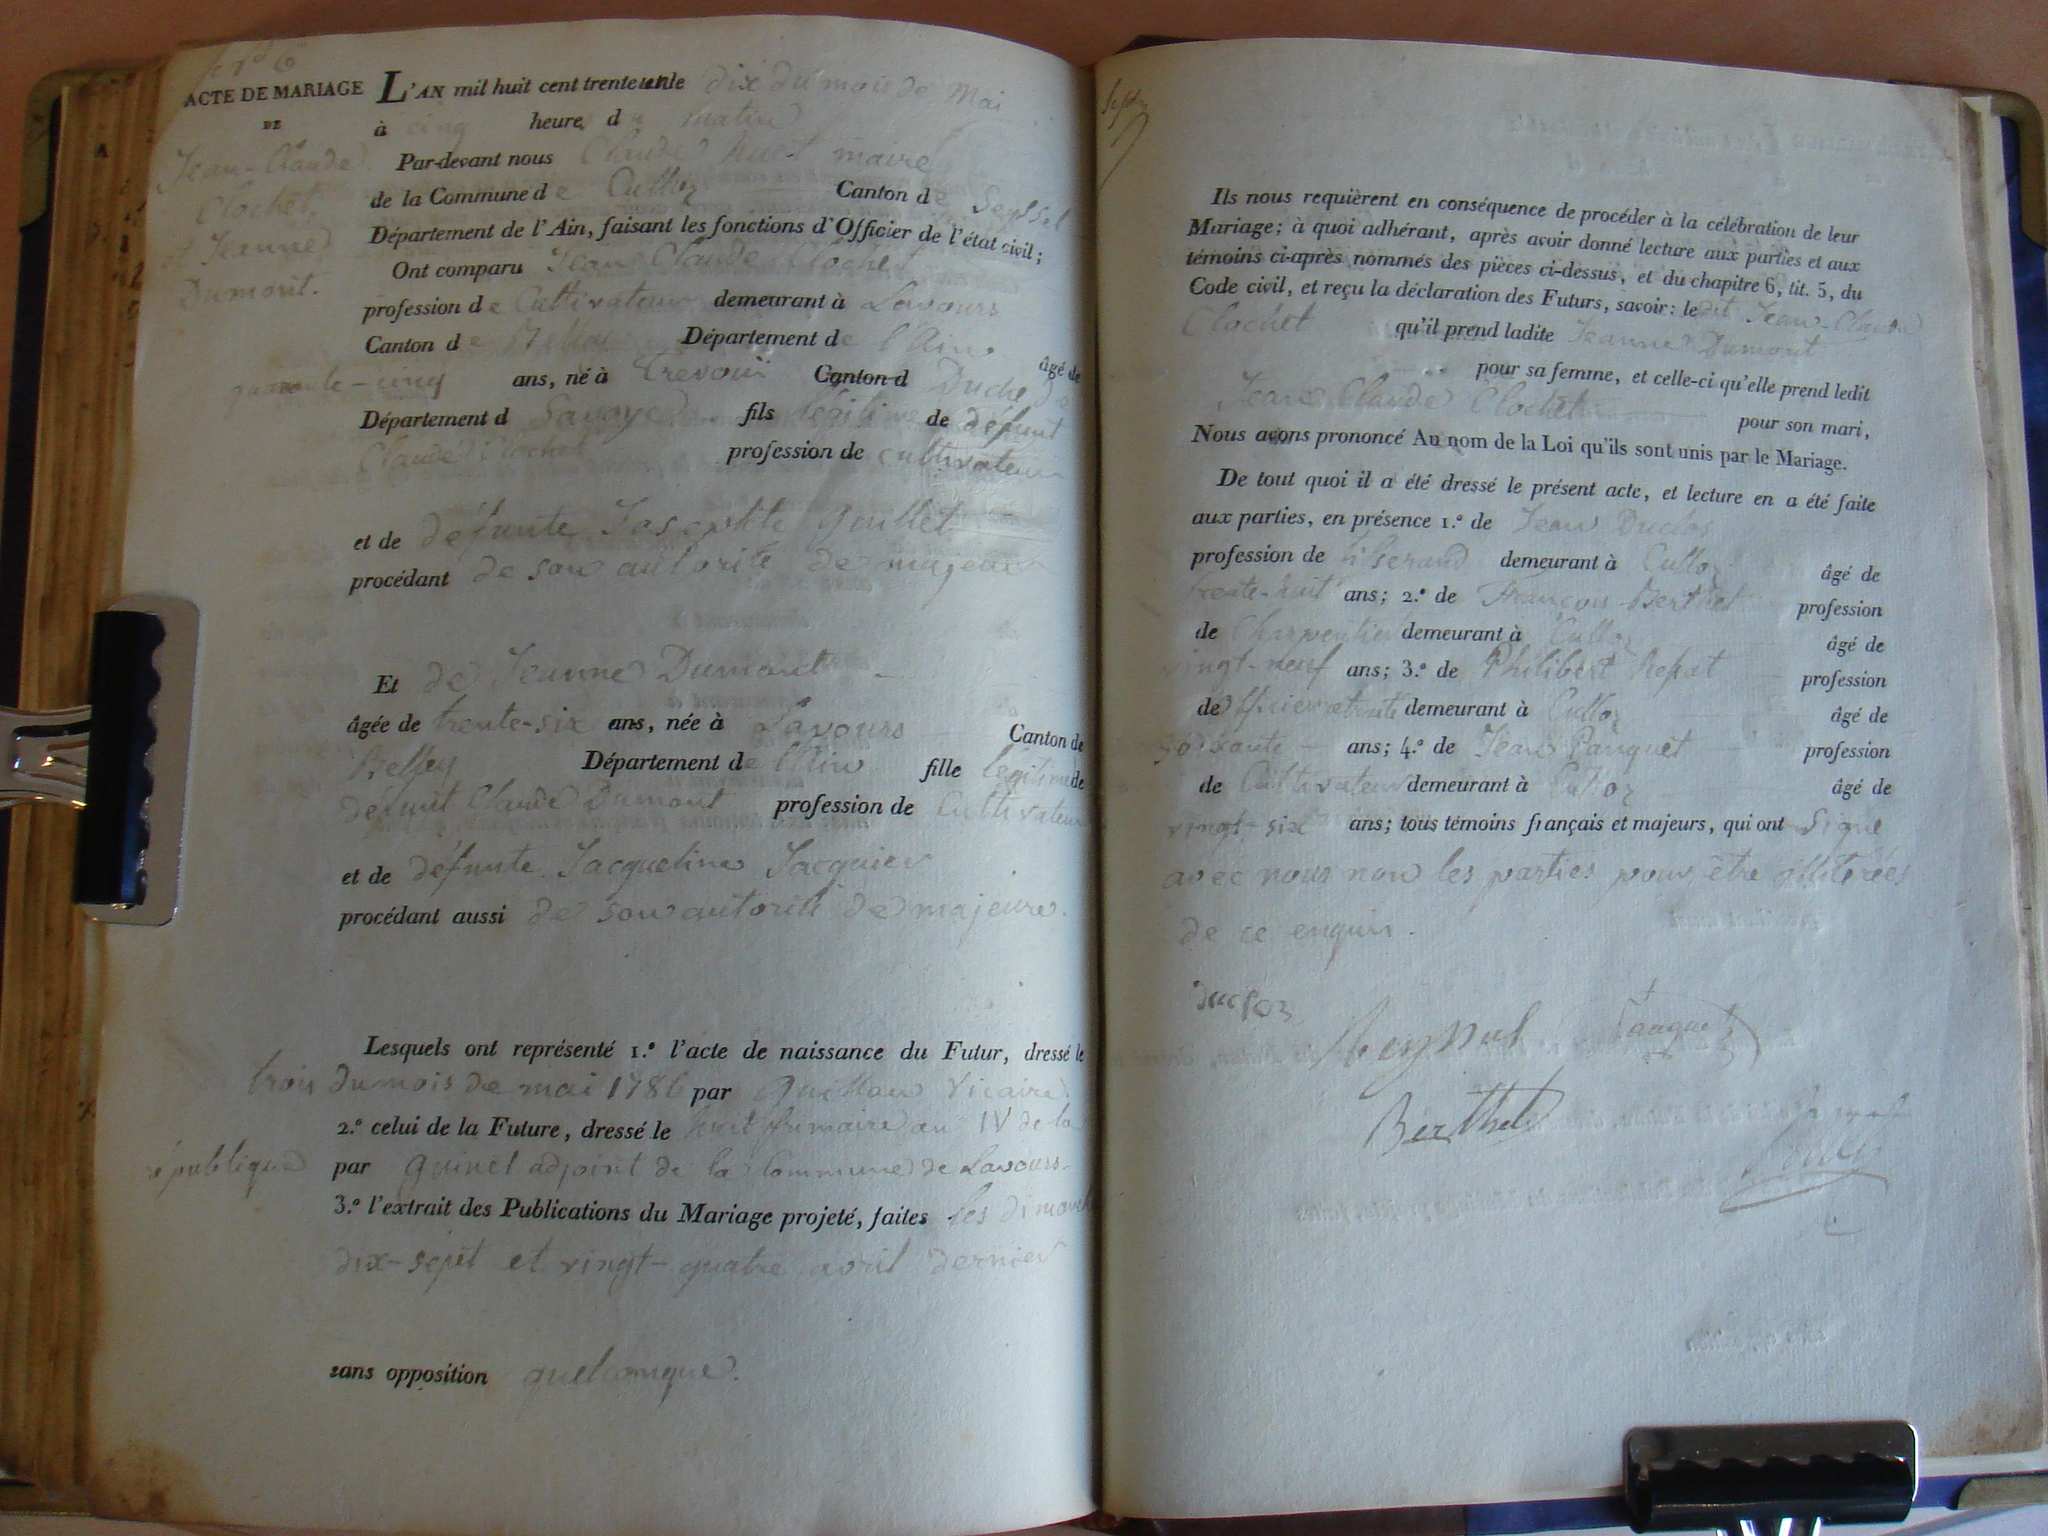 N° 6
ACTE DE MARIAGE
DE
Jean-Claude
Clochet,
et Jeanne
Dumont.
L'AN mil huit cent trente un le dix du mois de Mai
à cinq heures du matin
Par-devant nous Claude maire
de la Commune de Culloz Canton de Seyssel
Département de l'Ain, faisant les fonctions d'Officier de l'état civil;
Ont comparu Jean Claude Clochet
profession de Cultivateur demeurant à Lavours
Canton de Département de l'Ain. âgé de
quarante-cinq ans, né à Canton d Duché de
Département d Savoye fils légitime de défunt
Claude Clochet profession de cultivateur
et de défunte Josephte Goullet
procédant de son autorité de majeur
Et de Jeanne Dumont
âgée de trente-six ans, née à Lavours Canton de
Belley Département de l'Ain fille légitime de
défunt Claude Dumont profession de Cultivateur
et de défunte Jacqueline Jacquier
procédant aussi de son autorité de majeure.
Lesquels ont représenté 1.° l'acte de naissance du Futur, dressé le
trois du mois de mai 1786 par Vicaire
2.° celui de la Future, dressé le huit frimaire an IV de la
république par Guinet adjoint de la Commune de Lavours.
3.° l'extrait des Publications du Mariage projeté, faites les dimanches
dix-sept et vingt-quatre avril dernier
sans opposition quelconque.
Ils nous requièrent en conséquence de procéder à la célébration de leur
Mariage; à quoi adhérant, après avoir donné lecture aux parties et aux
témoins ci-après nommés des pièces ci-dessus, et du chapitre 6, tit. 5, du
Code civil, et reçu la déclaration des Futurs, savoir: le dit Jean-Claude
Clochet qu'il prend ladite Jeanne Dumont
pour sa femme, et celle-ci qu'elle prend ledit
Jean Claude Clochet pour son mari,
Nous avons prononcé Au nom de la Loi qu'ils sont unis par le Mariage.
De tout quoi il a été dressé le présent acte, et lecture en a été faite
aux parties, en présence 1.° de Jean Duclos
profession de tisserand demeurant à Culloz âgé de
trente-huit ans; 2.° de François Berthet profession
de Charpentier demeurant à Culloz âgé de
vingt-neuf ans; 3.° de Philibert profession
de officier retraité demeurant à Culloz âgé de
soixante ans; 4.° de Jean Panquet profession
de Cultivateur demeurant à Culloz âgé de
vingt-six ans; tous témoins français et majeurs, qui ont signé
avec nous non les parties pour être illitérées
de ce enquis.
duclos
Berthet